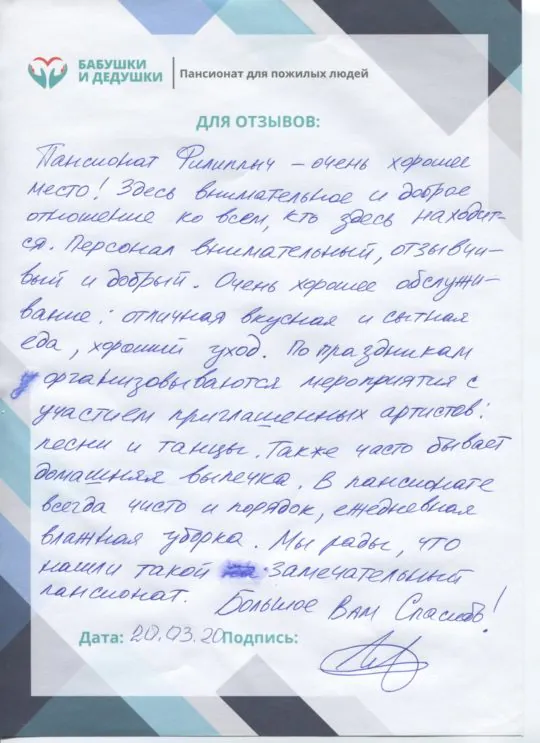 БАБУШКИ
И ДЕДУШКИ
Пансионат для пожилых людей
ДЛЯ ОТЗЫВОВ:
Пансионат Филиппыч – очень хорошее
место! Здесь внимательное и доброе
отношение ко всем, кто здесь находит-
ся. Персонал внимательный, отзывчи-
вый и добрый. Очень хорошее обслужи-
вание: отличная вкусная и сытная
еда, хороший уход. По праздникам
организовываются мероприятия с
участием приглашенных артистов:
песни и танцы. Также часто бывает
домашняя выпечка. В пансионате
всегда чисто и порядок, ежедневная
влажная уборка. Мы рады, что
нашли такой замечательный
пансионат. Большое Вам Спасибо!
Дата: 20.03.20 Подпись: